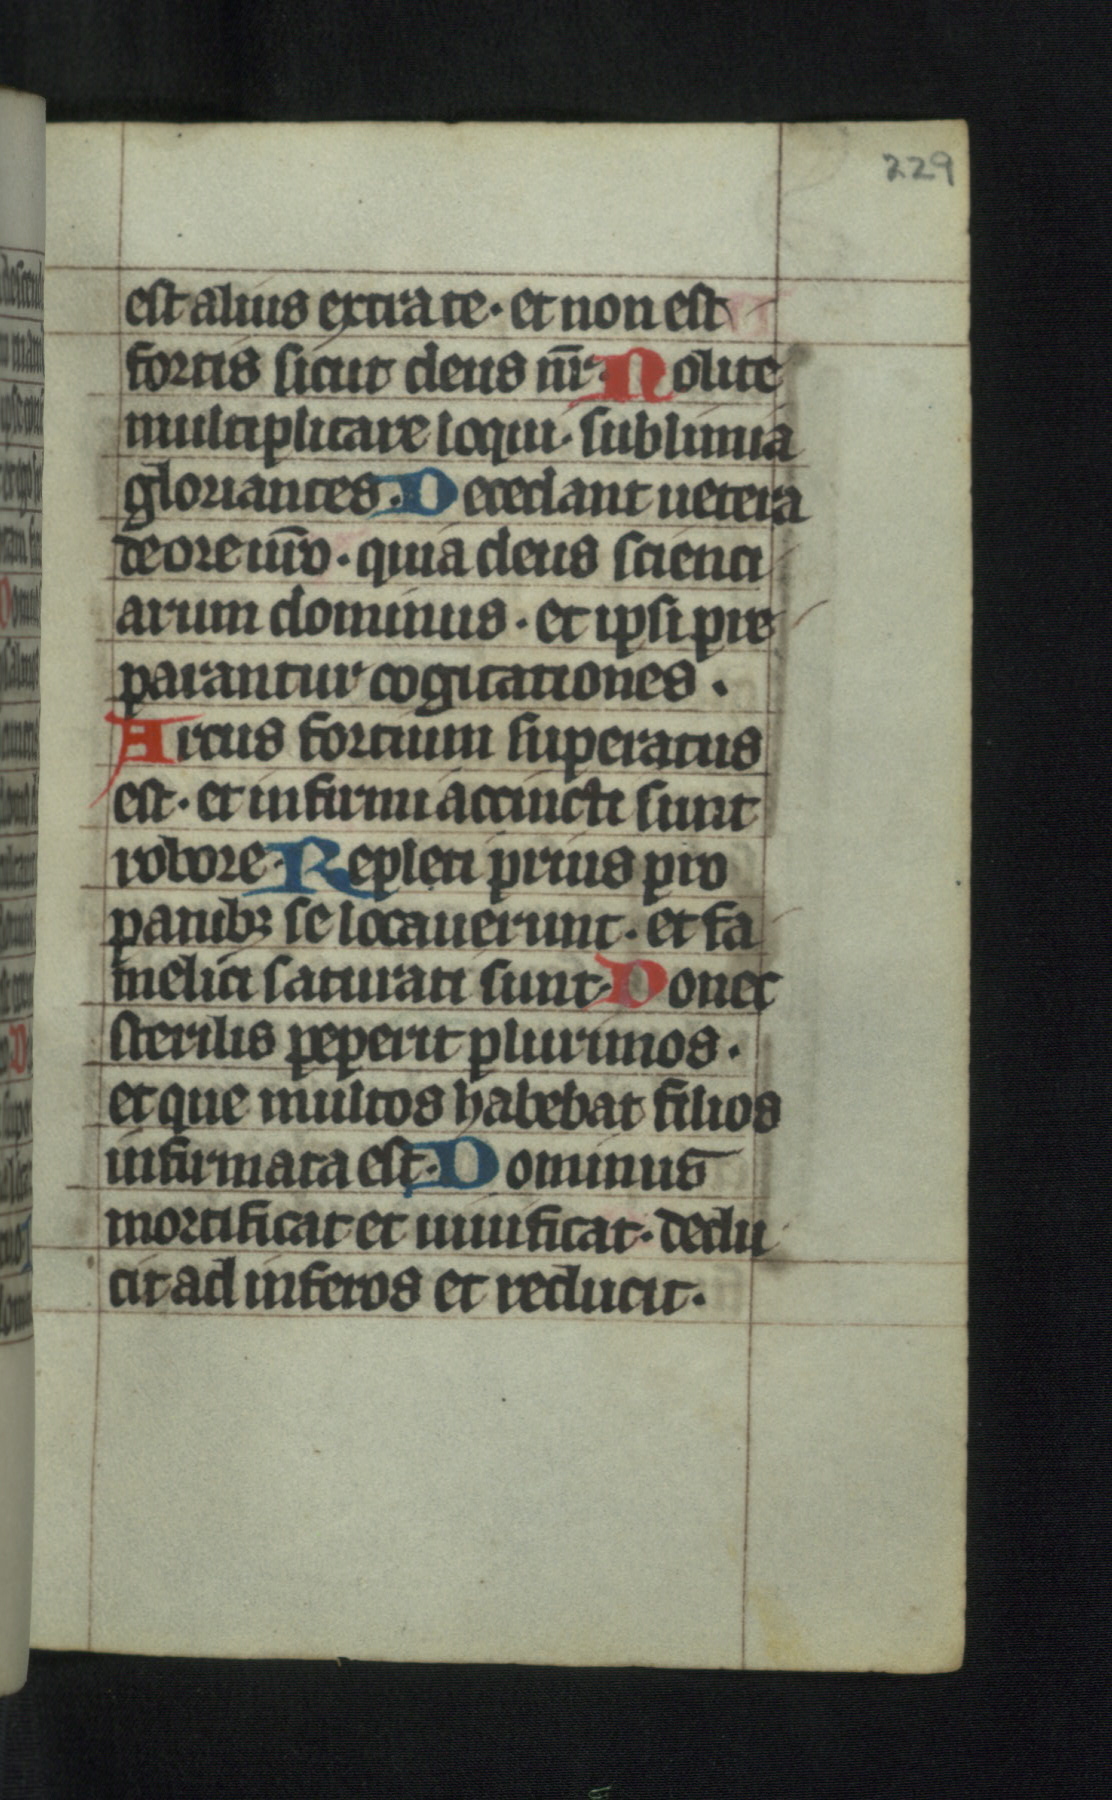 229
est alius extra te · et non est
fortis sicut deus nr̄ · Nolite
multiplicare loqui · sublimia
gloriantes · Decedant uetera
de ore ur̄o · quia deus scienti
arum dominus · et ipsi pre
parantur cogitationes ·
Arcus fortium superatus
est · et infirmi accincti sunt
robore · Repleti prius pro
panibꝫ se locauerunt · et fa
melici saturati sunt · Donec
sterilis peperit plurimos ·
et que multos habebat filios
infirmata est · Dominus
mortificat et uiuificat · dedu
cit ad inferos et reducit ·